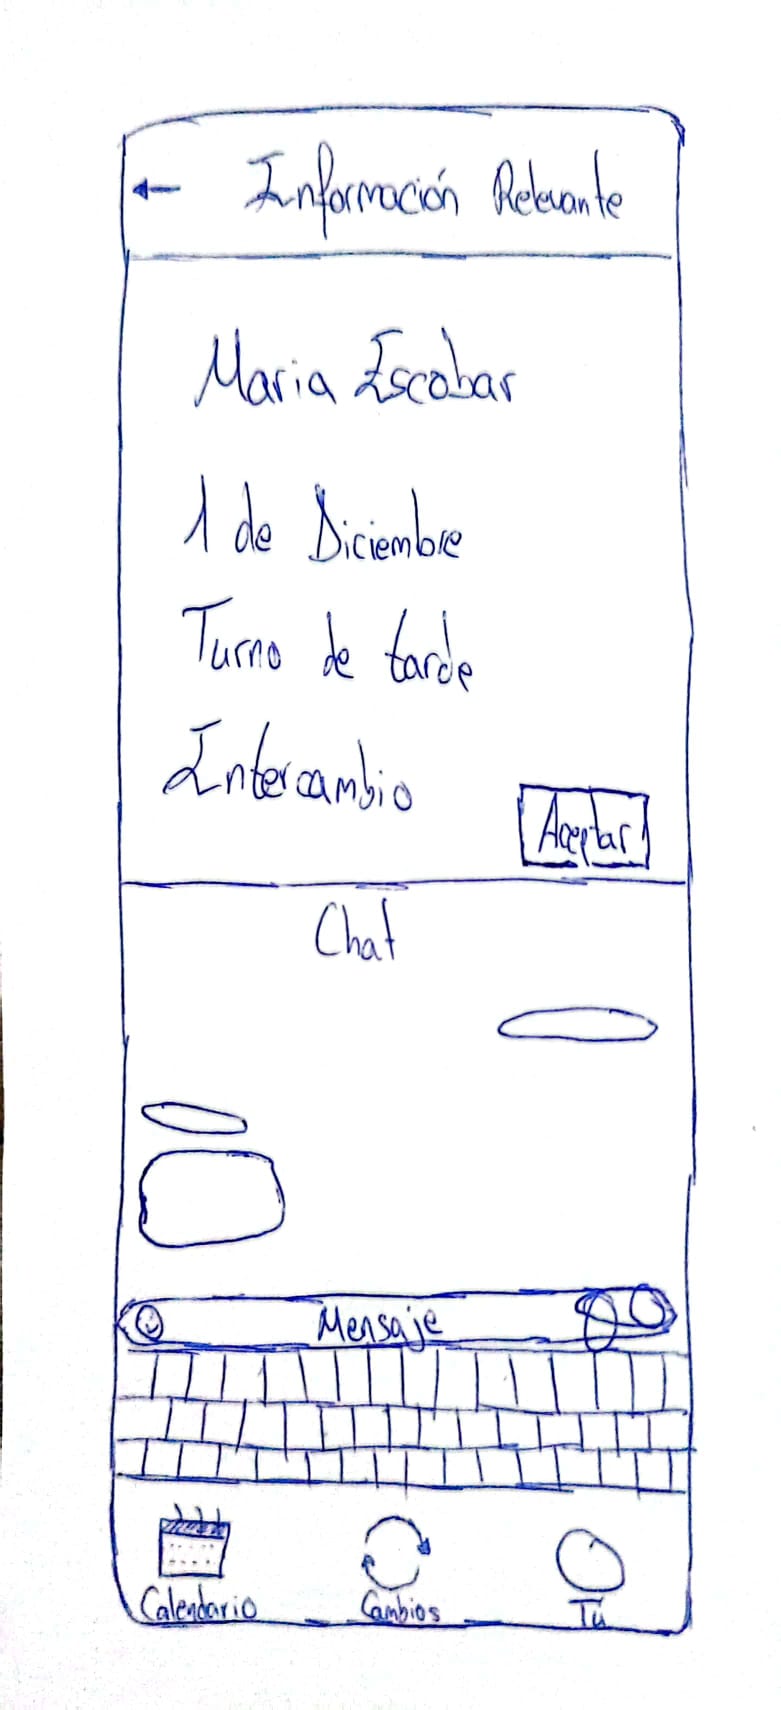 Información Relevante
Maria Escobar
1 de Diciembre
Turno de tarde
Intercambio
Aceptar
Chat
Mensaje
Calendario Cambios Tú